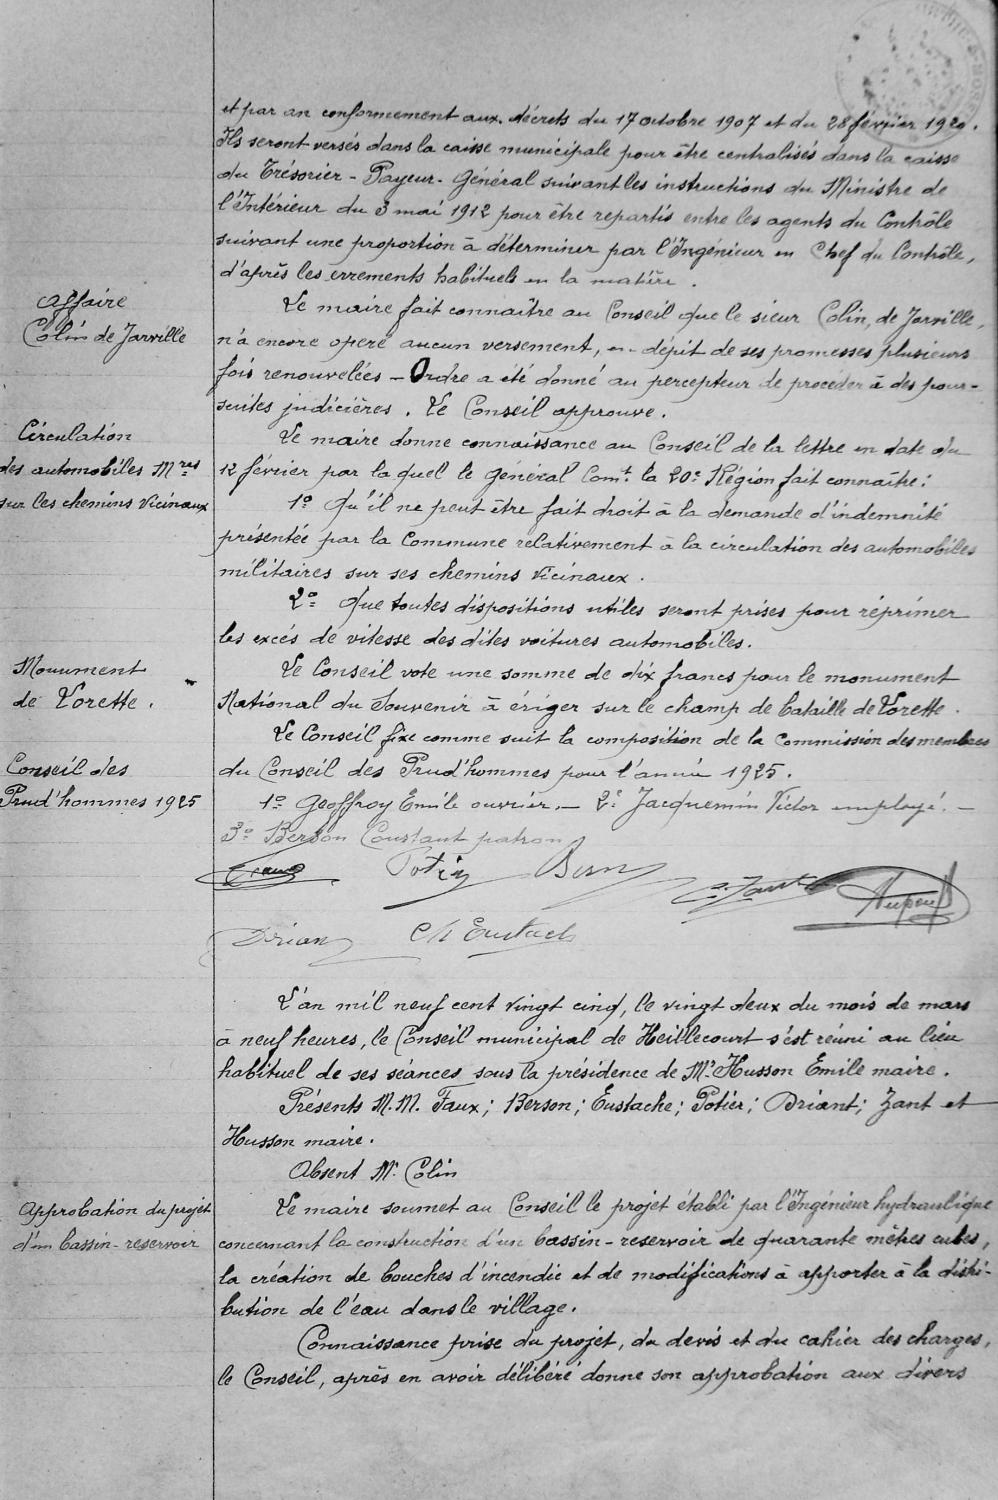 et par an conformement aux décrets du 17 octobre 1907 et du 28 février 1920.
Ils seront versés dans la caisse municipale pour être centralisés dans la caisse
du Trésorier-Payeur-Général suivant les instructions du Ministre de
l'Intérieur du 3 mai 1912 pour être repartis entre les agents du Contrôle
suivant une proportion à déterminer par l'Ingénieur en Chef du Contrôle,
d'après les errements habituels en la matière.
Affaire
Colin de Jarville
Le maire fait connaître au Conseil que le sieur Colin, de Jarville,
n'a encore operé aucun versement, en dépit de ses promesses plusieurs
fois renouvelées - Ordre a été donné au percepteur de proceder à des pour-
suites judicières. Le Conseil approuve.
Circulation
des automobiles Mres
sur les chemins Vicinaux
Le maire donne connaissance au Conseil de la lettre en date du
12 février par laquel le Général Comt la 20e Région fait connaître:
1° Qu'il ne peut être fait droit à la demande d'indemnité
présentée par la Commune relativement à la circulation des automobiles
militaires sur ses chemins Vicinaux.
2° Que toutes dispositions utiles seront prises pour réprimer
les excés de vitesse des dites voitures automobiles.
Monument
de Lorette.
Le Conseil vote une somme de dix francs pour le monument
National du Souvenir à ériger sur le champ de bataille de Lorette.
Conseil des
Prud'hommes 1925
Le Conseil fixe comme suit la composition de la Commission des membres
du Conseil des Prud'hommes pour l'année 1925.
1° Geoffroy Emile ouvrier. - 2° Jacquemin Victor employé. -
3° Berson Constant patron
Faux Potier Berson Zant
Briant Ch Eustache
L'an mil neuf cent vingt cinq, le vingt deux du mois de mars
à neuf heures, le Conseil municipal de Heillecourt s'est réuni au lieu
habituel de ses séances sous la présidence de Mr Husson Emile maire.
Présents M.M. Faux; Berson; Eustache; Potier; Briant; Zant et
Husson maire.
Absent Mr Colin
Approbation du projet
d'un bassin-reservoir
Le maire soumet au Conseil le projet établi par l'Ingénieur hydraulique
concernant la construction d'un bassin-reservoir de quarante mètres cubes,
la création de bouches d'incendie et de modifications à apporter à la distri-
bution de l'eau dans le village.
Connaissance prise du projet, du devis et du cahier des charges,
le Conseil, après en avoir délibéré donne son approbation aux divers